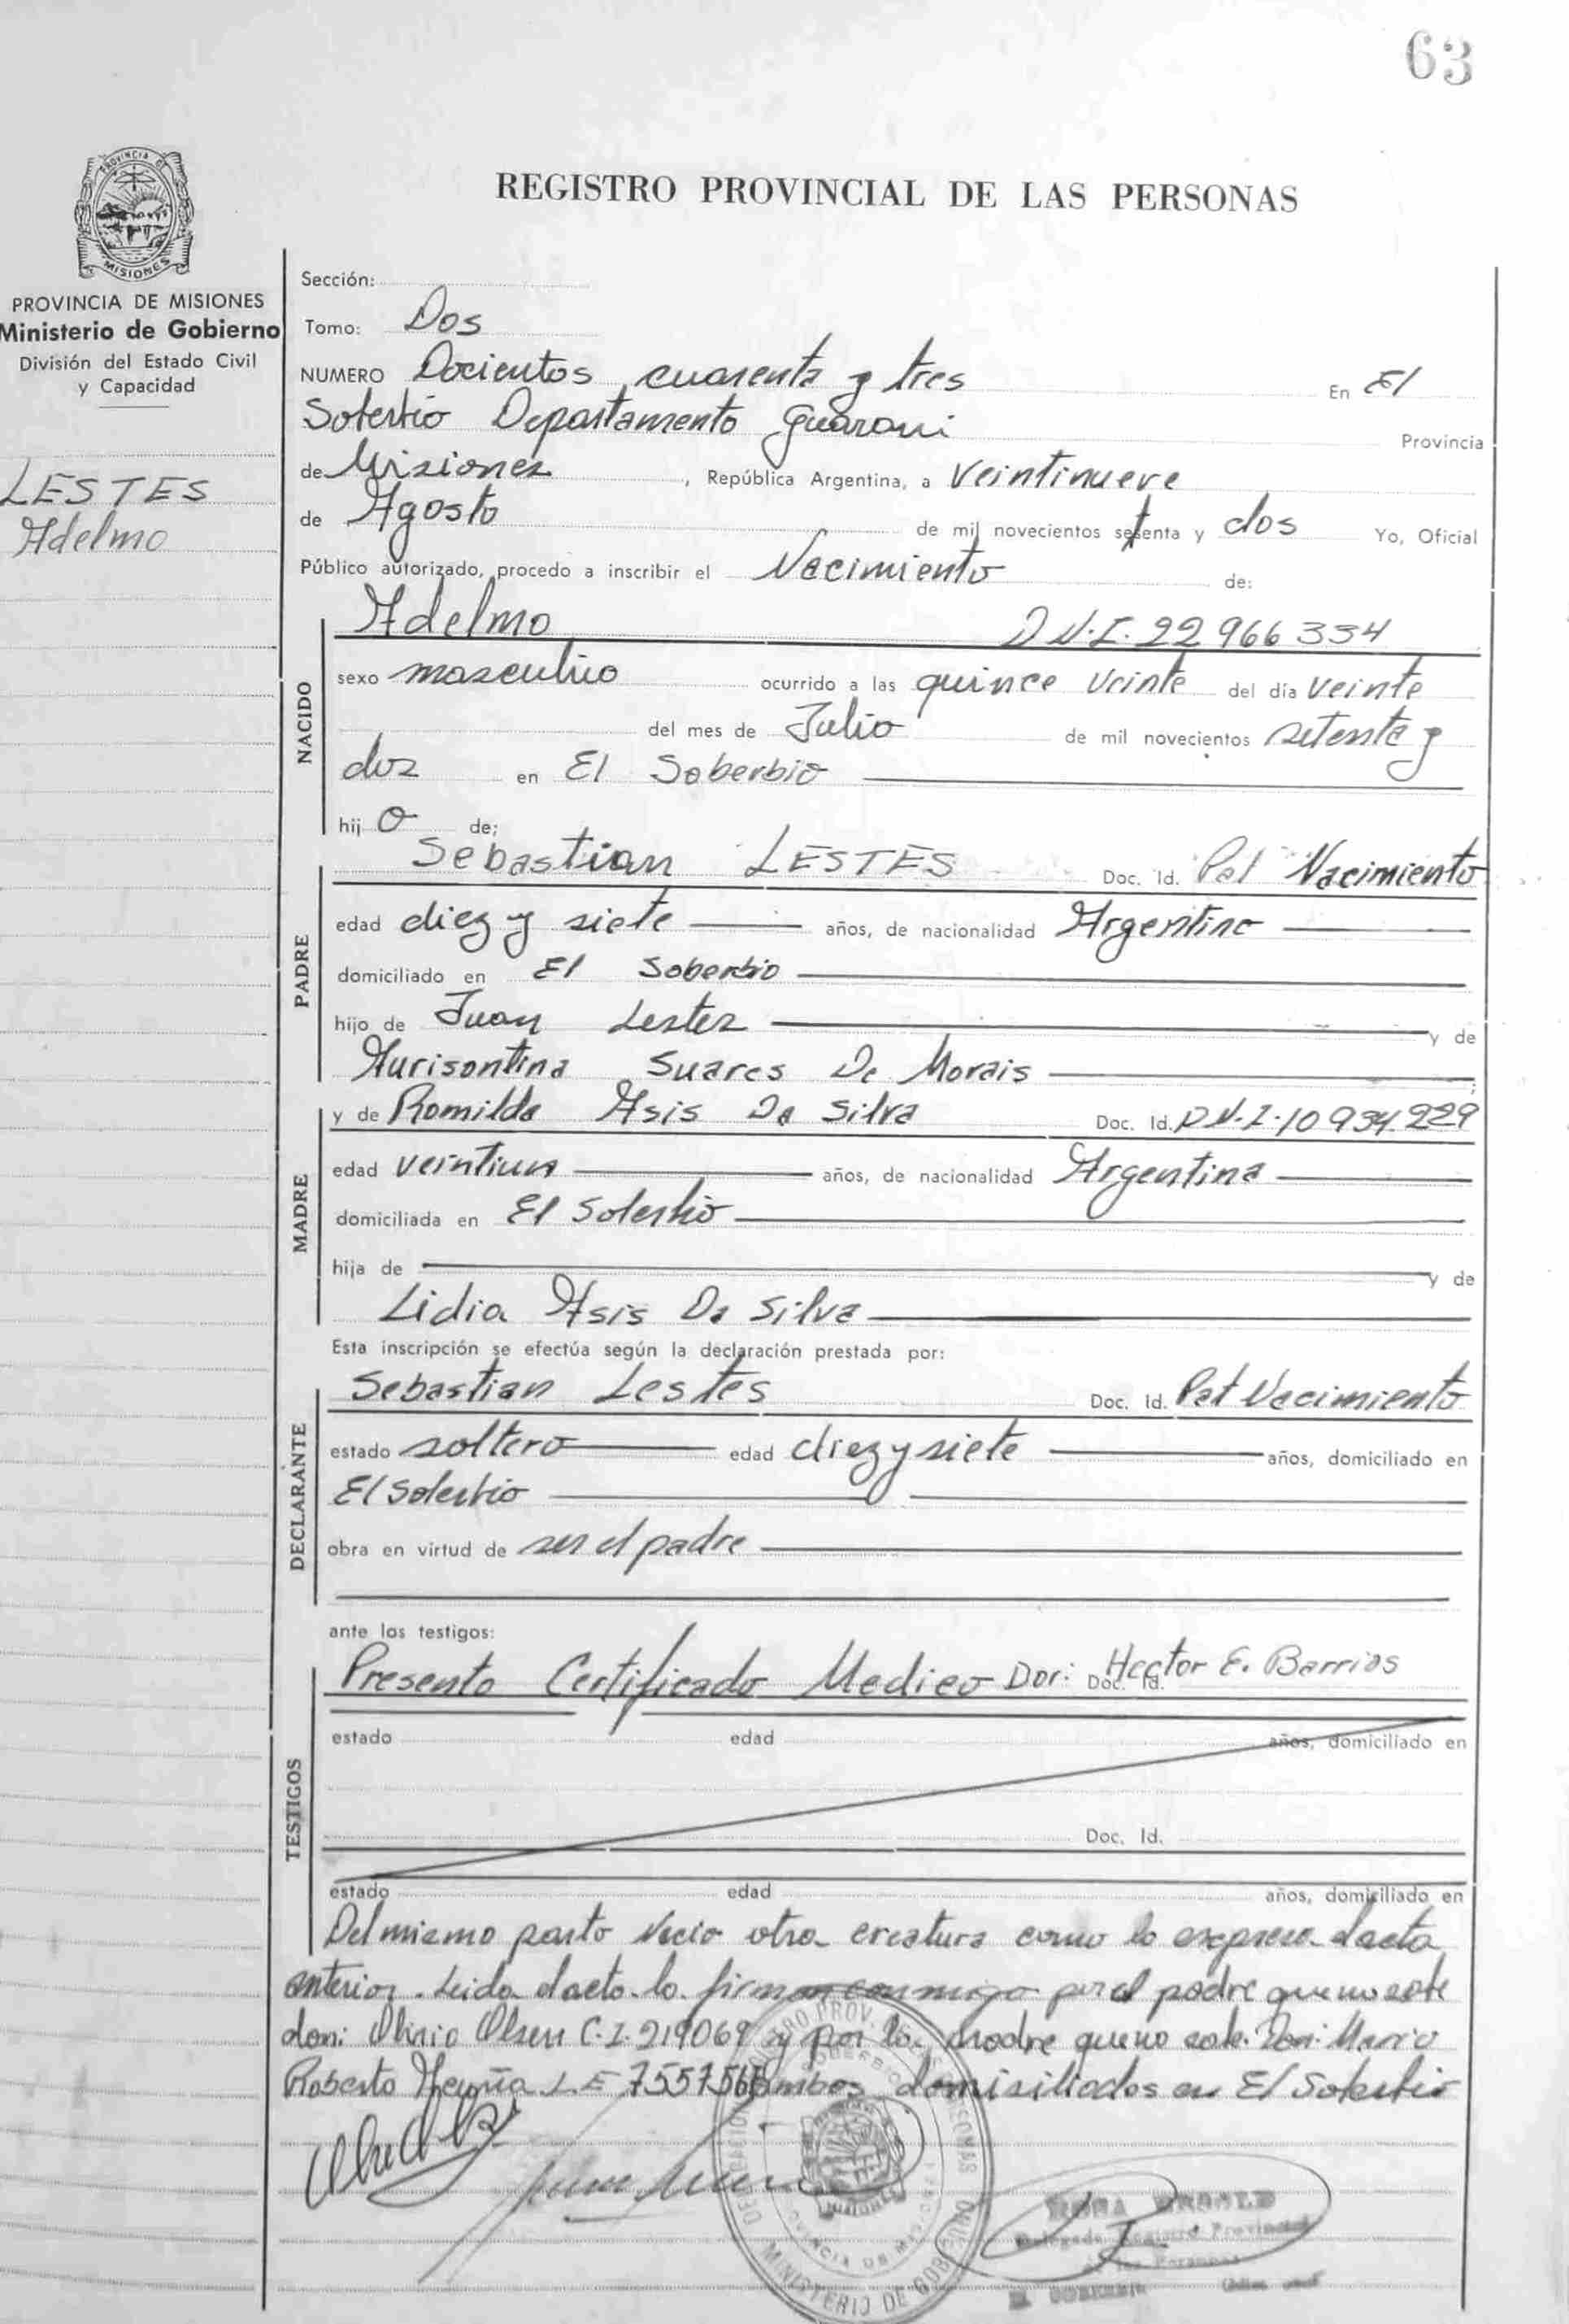 63
PROVINCIA DE
MISIONES
REGISTRO PROVINCIAL DE LAS PERSONAS
PROVINCIA DE MISIONES
Ministerio de Gobierno
División del Estado Civil
y Capacidad
LESTES
Adelmo
Sección:
Tomo: Dos
NUMERO Docientos cuarenta y tres En El
Soberbio Departamento Guarani Provincia
de Misiones, República Argentina, a Veintinueve
de Agosto de mil novecientos setenta y dos Yo, Oficial
Público autorizado, procedo a inscribir el Nacimiento de:
NACIDO
Adelmo D.N.I. 22 966 334
sexo masculino ocurrido a las quince veinte del día veinte
del mes de Julio de mil novecientos setenta y
dos en El Soberbio
hij o de;
PADRE
Sebastian LESTES Doc. Id. Pat Nacimiento
edad diez y siete años, de nacionalidad Argentino
domiciliado en El Soberbio
hijo de Juan Lestes y de
Aurisontina Suares De Morais
MADRE
y de Romilda Asis Da Silva Doc. Id. D.N.I. 10 934.229
edad veintiun años, de nacionalidad Argentina
domiciliada en El Soberbio
hija de y de
Lidia Asis Da Silva
Esta inscripción se efectúa según la declaración prestada por:
DECLARANTE
Sebastian Lestes Doc. Id. Pat Nacimiento
estado soltero edad diez y siete años, domiciliado en
El Soberbio
obra en virtud de ser el padre
ante los testigos:
TESTIGOS
Presento Certificado Medico Dor: Hector E. Barrios Doc. Id.
estado edad años, domiciliado en
Doc. Id.
estado edad años, domiciliado en
Del mismo parto Nacio otra creatura como lo expresa el acta
anterior. Leida el acta. lo firman conmigo por el padre que no sabe
don: Olirio Olsen C.I. 219069 y por la madre que no sabe. Don: Mario
Roberto L.E 7557568 Ambos domisiliados en El Soberbio
MINISTERIO DE GOB
MISIONES
Delegada Registro Provincial
de las Personas
EL SOBERBIO